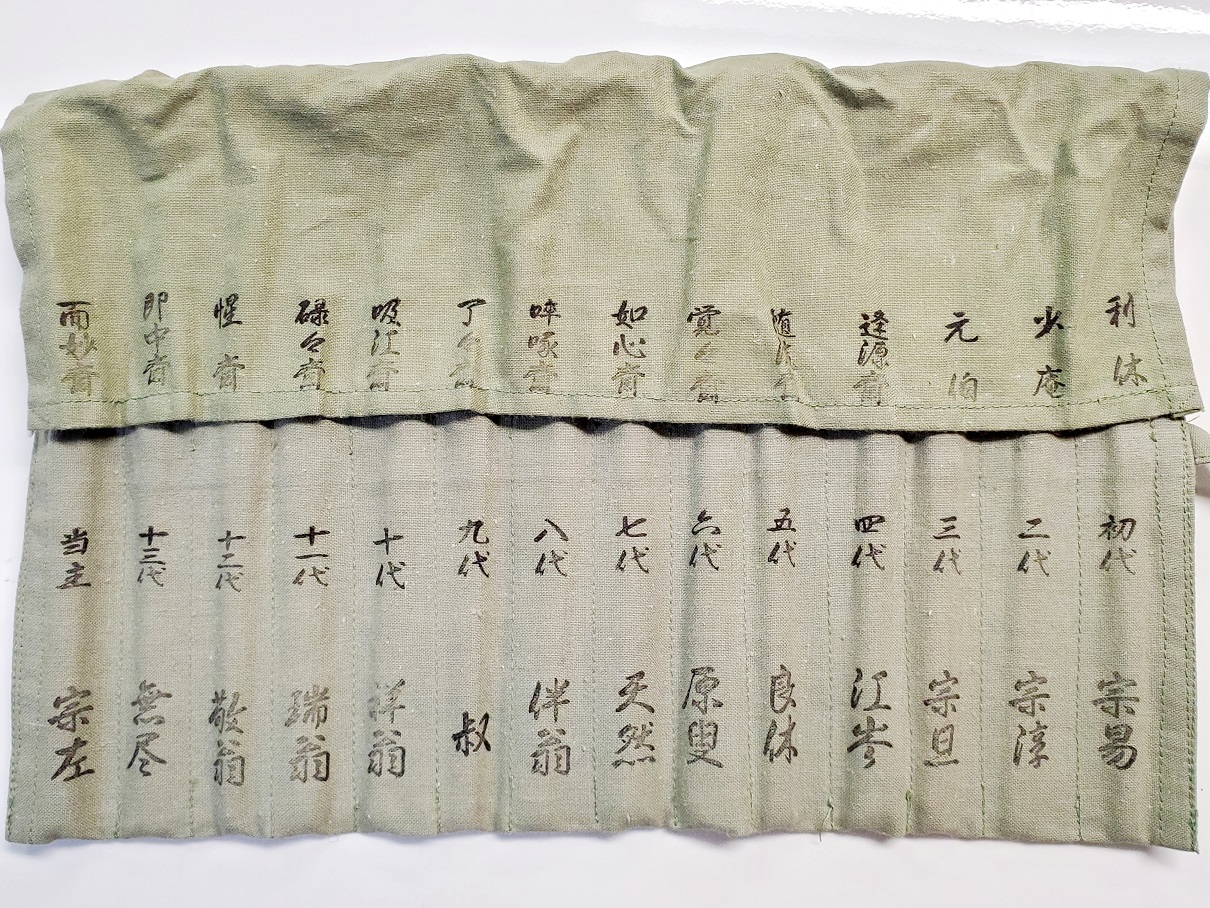 利休
初代
宗易
少庵
二代
宗淳
元伯
三代
宗旦
逢源斎
四代
江岑
随流斎
五代
良休
覚々斎
六代
原叟
如心斎
七代
天然
啐啄斎
八代
伴翁
了々斎
九代
叔
吸江斎
十代
祥翁
碌々斎
十一代
瑞翁
惺斎
十二代
敬翁
即中斎
十三代
無尽
而妙斎
当主
宗左